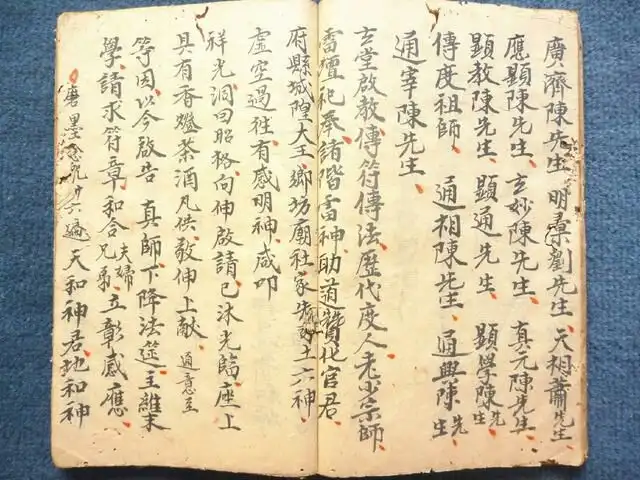 廣濟陳先生 明彙劉先生 天相蕭先生
應顯陳先生、玄妙陳先生、真元陳先生、
顯教陳先生、顯通先生、顯學陳先生
傳度祖師、通相陳先生、通興陳先生
通宰陳先生、
玄堂啟教傳符傳法歷代度人老少宗師、
雷壇祀奉諸階雷神助道贊化官君、
府縣城隍大王鄉坊廟社家先土六神、
虛空過往有感明神、咸叩
祥光洞回昭格向伸啟請已沐光臨座上
具有香燈茶酒凡供敬伸上献、通意至
等因以今啟告 真師下降法筵主維末
學請求符章和合夫婦兄弟立彰感應、
磨墨念咒廿六遍 天和神君地和神